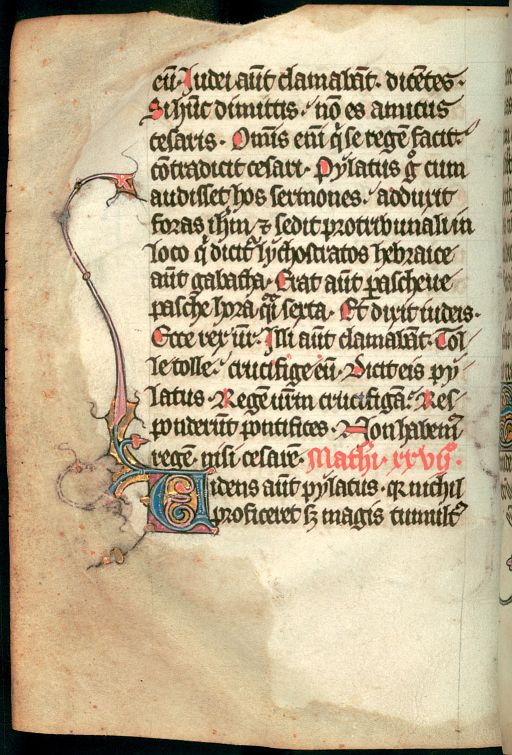 eū. Iudei aūt clamabāt. dicētes.
Si hūc dimittis. nō es amicus
cesaris. Om̄is em̄ q̇ se regē facit.
cōtradicit cesari. Pylatus gͦ cum
audisset hos sermones. adduxit
foras ihm̄. ⁊ sedit pro tribunali in
loco q̇ dicitᷣ lychostratos hebraice
aūt gabatha. Erat aūt ꝑasceue
pasche hora qᷓsi sexta. Et dixit iudeis.
Ecce rex ur̄. Illi aūt clamabāt. Tol
le tolle. crucifige eū. Dicit eis py
latus. Regē ur̄m crucifigā. Res
ponderūt pontifices. Non habemꝰ
regē nisi cesarē. Mathi. xxvijͦ.
Uidens aūt pylatus. qꝛ nichil
proficeret sꝫ magis tumultꝰ